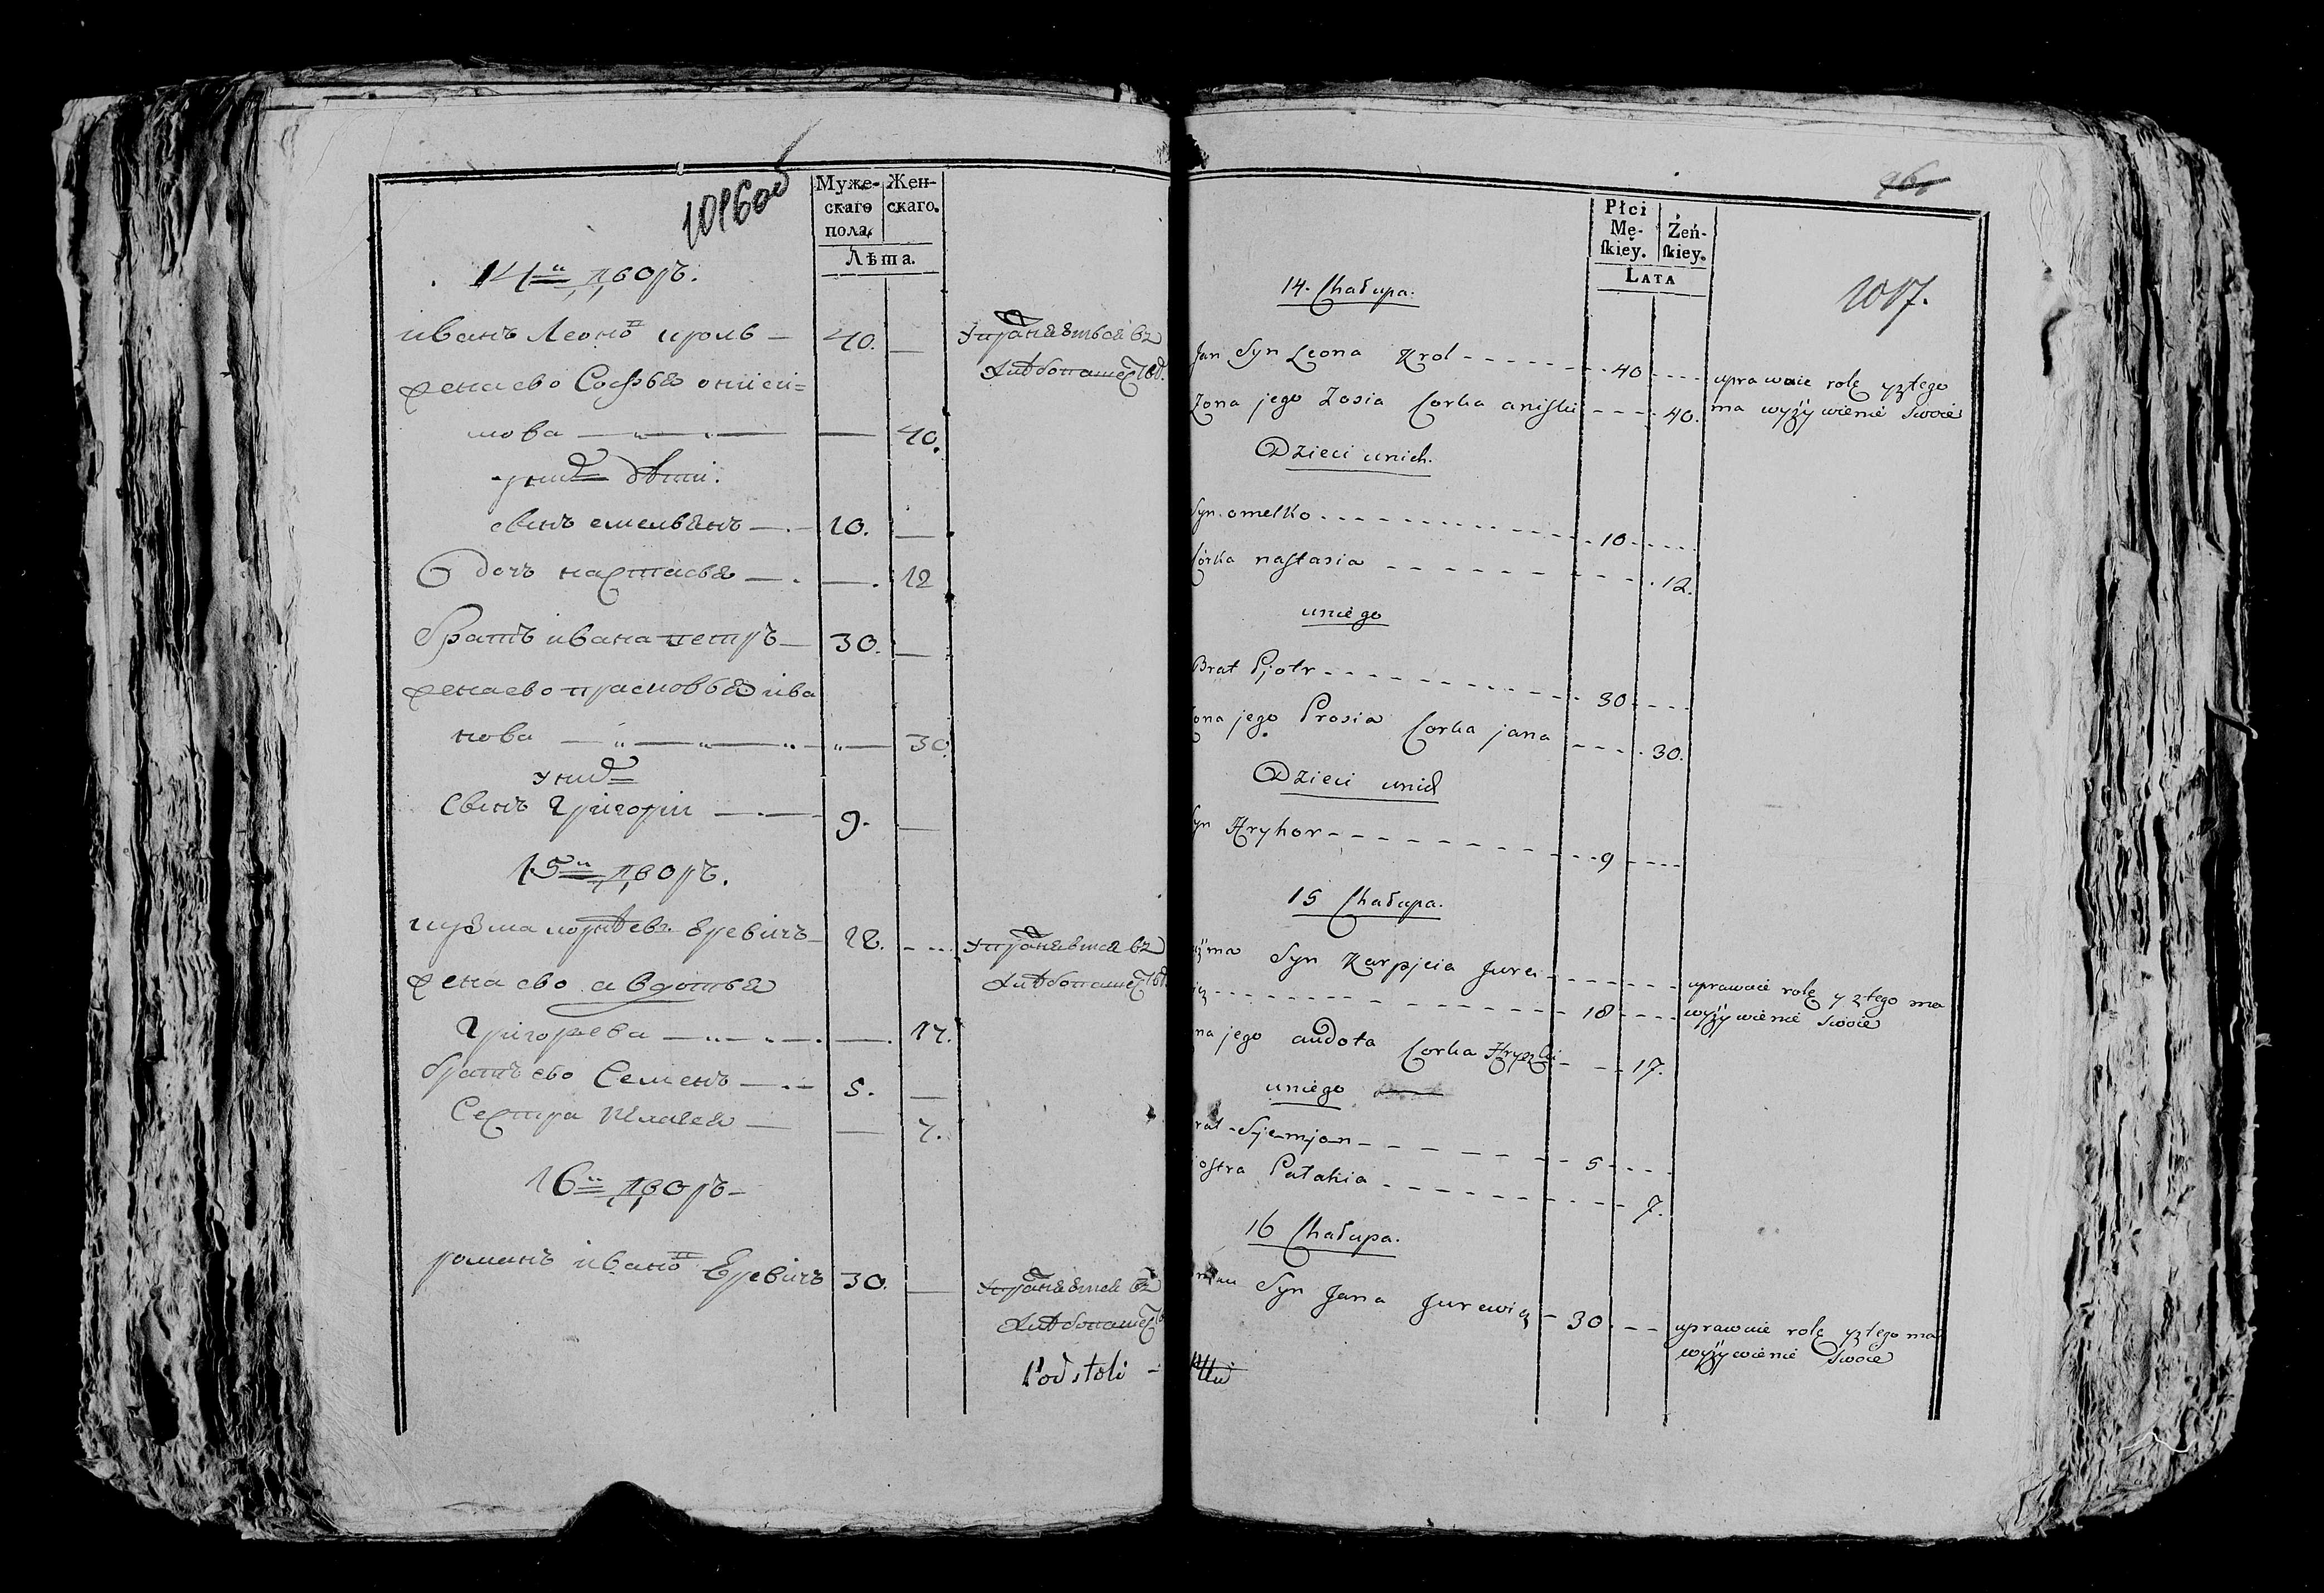 1016об
Муже-
скаго
пола,
Жен-
скаго.
Лѣта.
14й дворъ.
иванъ Леоно въ кроль — 40. —
Упражняется въ
хлѣбопашествѣ.
жена ево Софья онисі=
мова — — 40.
у них дѣти.
сынъ емельянъ — 10. —
дочь настасья — — 12
братъ ивана петръ — 30. —
жена ево прасковья ива
нова — — 30.
у них
Сынъ Григори — 9. —
15й дворъ.
кузма корпѣевъ Еревичъ — 18. —
Упражняется въ
хлѣбопашествѣ.
жена ево авдотья
Григорьева — — 17.
братъ ево Семенъ — 5. —
Сестра — — 7.
16й дворъ —
романъ ивановъ Еревичъ 30. —
Упражняется въ
хлѣбопашествѣ
Podstoli -
Płci
Mę-
ſkiey.
Żeń-
ſkiey.
LATA
1017.
14. Chałupa.
Jan Syn Leona Krol - - - - 40 - - - -
uprawuie rolę y ztego
ma wyżywienie swoie
Zona jego Zosia Corka aniſki - - - - 40.
Dzieci unich.
Syn omelko - - - - 10 - - - -
Córka naſtasia - - - - 12.
uniego
Brat Pjotr - - - - 30 - - - -
ona jego Prosia Corka jana - - - - 30.
Dzieci unich
yn Hryhor - - - - 9 - - - -
15 Chałupa.
uźma Syn Karpjeia Jure- - - - -
uprawuie rolę y ztego ma
wicz - - - - 18 - - - -
wyżywienie swoie
na jego audota Corka Hryszki - - - 17.
uniego
rat Sjemjon - - - - 5 - - - -
iostra Patahia - - - - 7.
16 Chałupa.
Syn Jana Jurewicz - 30 - - -
uprawuie rolę y ztego ma
wyżywienie swoie